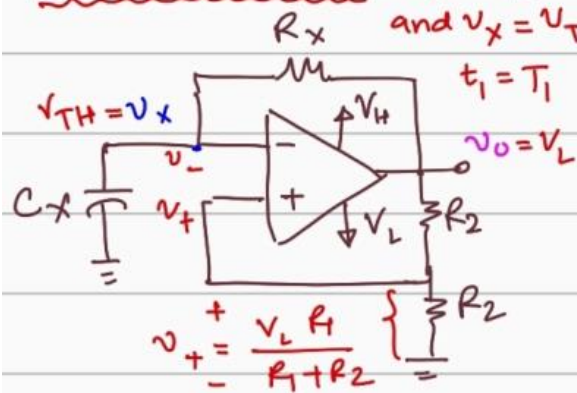 and v_X = v_T
R_X
t_1 = T_1
v_TH = v_X
V_H
v_-
v_O = V_L
-
C_X
v_+
+
V_L
R_2
R_2
+
v_+ = V_L R_1
- R_1 + R_2